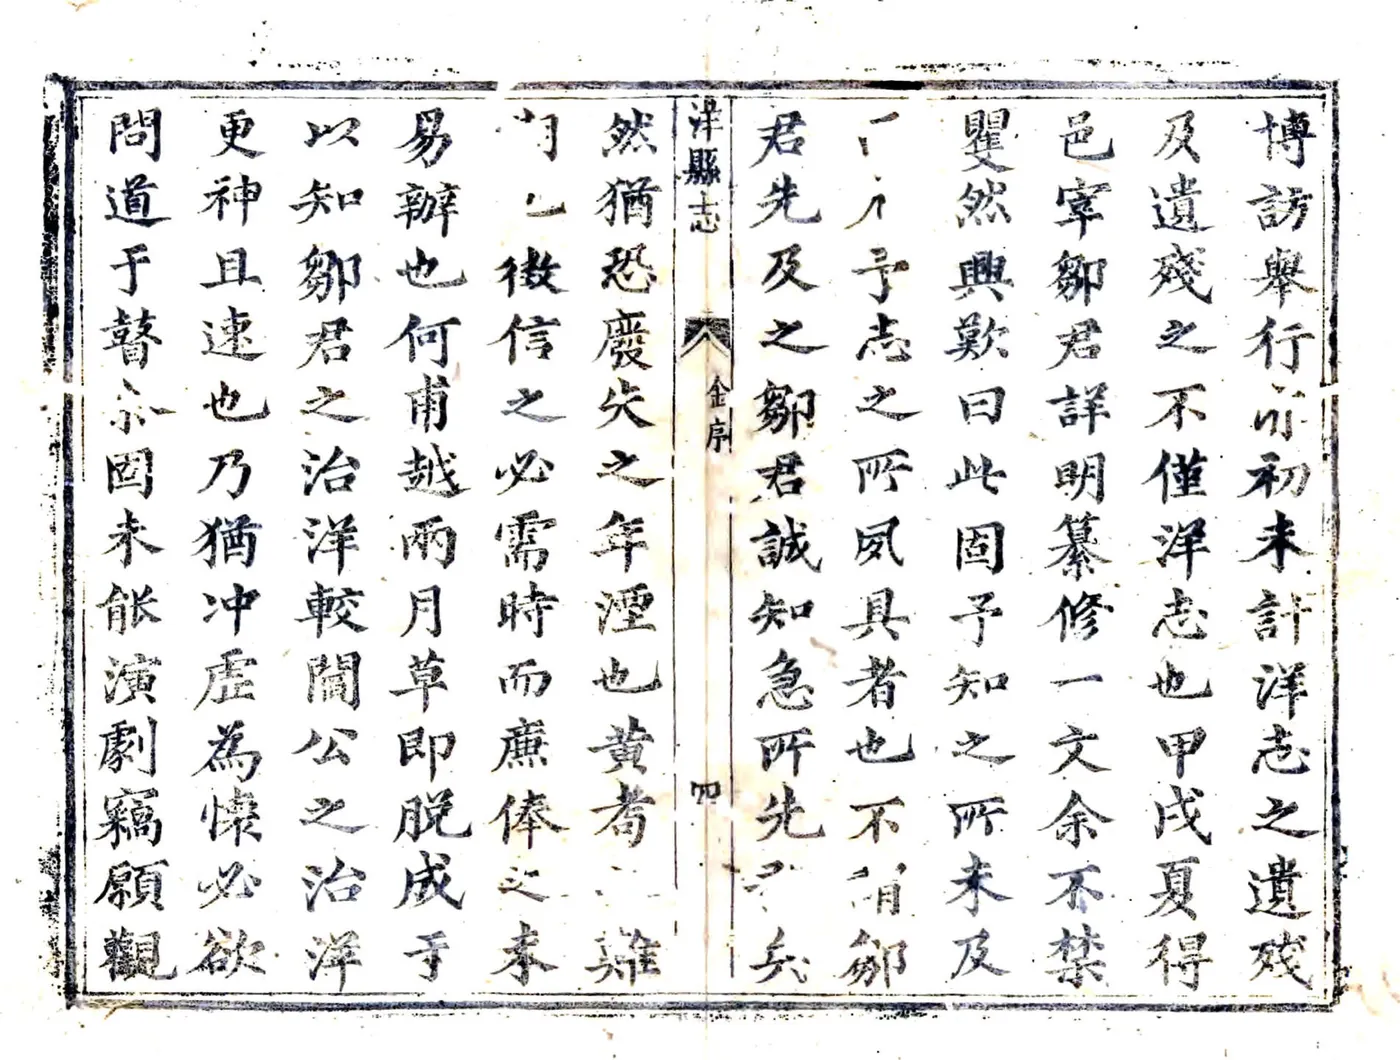 博訪舉行初未計洋志之遺殘
及遺殘之不僅洋志也甲戌夏得
邑宰鄒君詳明纂修一文余不禁
瞿然興歎曰此固予知之所未及
予志之所夙具者也不鄒
君先及之鄒君誠知急所先矣
洋縣志
金序
四
然猶恐廢失之年湮也黃者難
徵信之必需時而廉俸之未
易辦也何甫越兩月草即脫成于
以知鄒君之治洋較閻公之治洋
更神且速也乃猶冲虛為懷必欲
問道于瞽余固未能演劇竊願觀